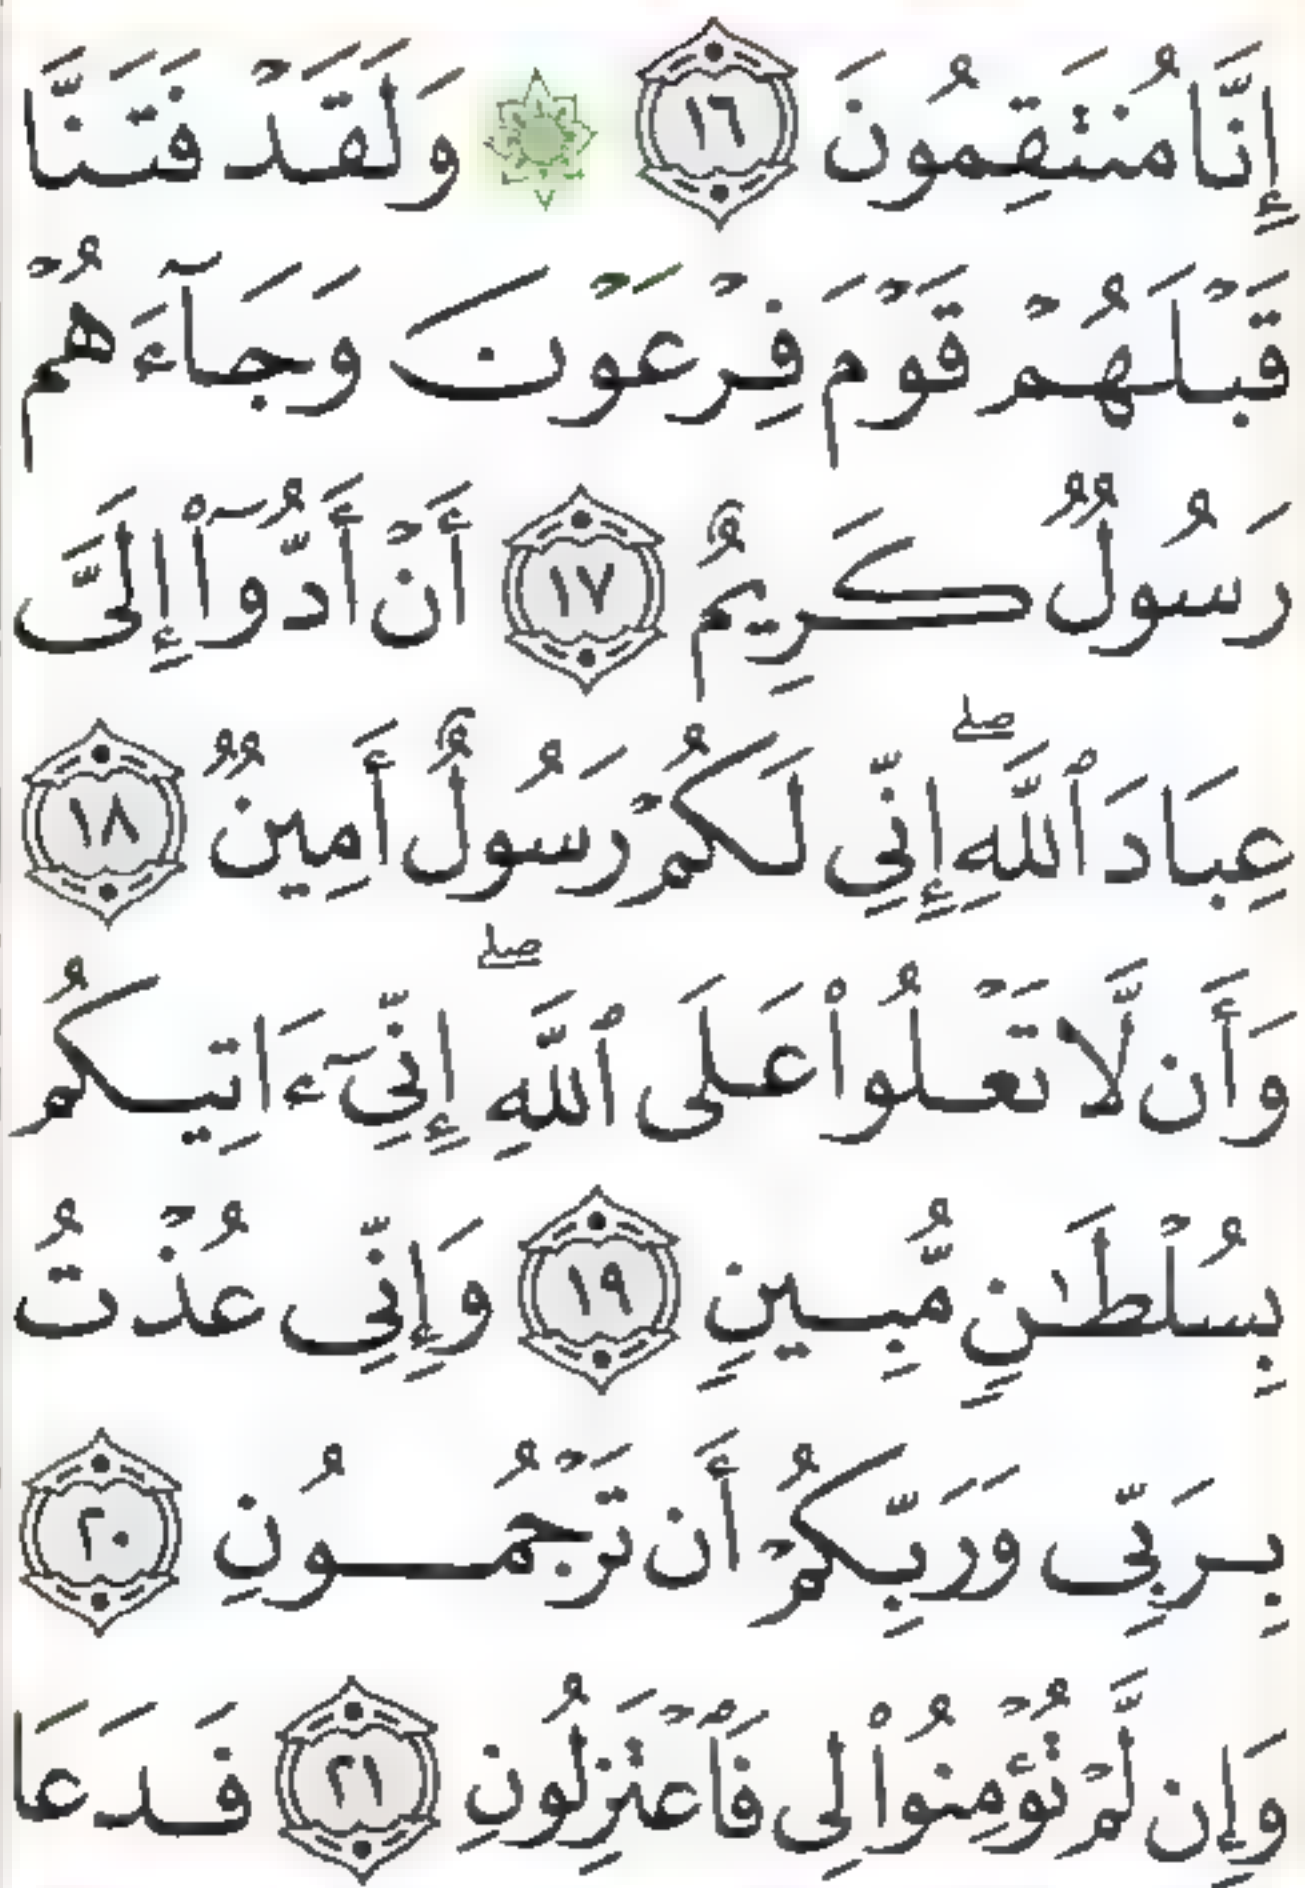 إِنَّا مُنتَقِمُونَ ١٦ ۞ وَلَقَدْ فَتَنَّا
قَبْلَهُمْ قَوْمَ فِرْعَوْنَ وَجَآءَهُمْ
رَسُولٌ كَرِيمٌ ١٧ أَنْ أَدُّوٓا۟ إِلَىَّ
عِبَادَ ٱللَّهِ ۖ إِنِّى لَكُمْ رَسُولٌ أَمِينٌ ١٨
وَأَن لَّا تَعْلُوا۟ عَلَى ٱللَّهِ ۖ إِنِّىٓ ءَاتِيكُم
بِسُلْطَٰنٍ مُّبِينٍ ١٩ وَإِنِّى عُذْتُ
بِرَبِّى وَرَبِّكُمْ أَن تَرْجُمُونِ ٢٠
وَإِن لَّمْ تُؤْمِنُوا۟ لِى فَٱعْتَزِلُونِ ٢١ فَدَعَا